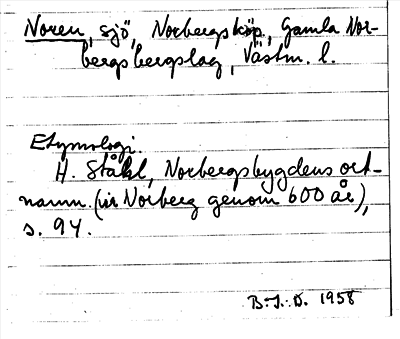 Noren, sjö, Norbergs köp, Gamla Nor-
bergs bergslag, Västm. l.
Etymologi.
H. Ståhl, Norbergsbygdens ort-
namn. (ur Norberg genom 600 år),
s. 94.
B.-I. D. 1958